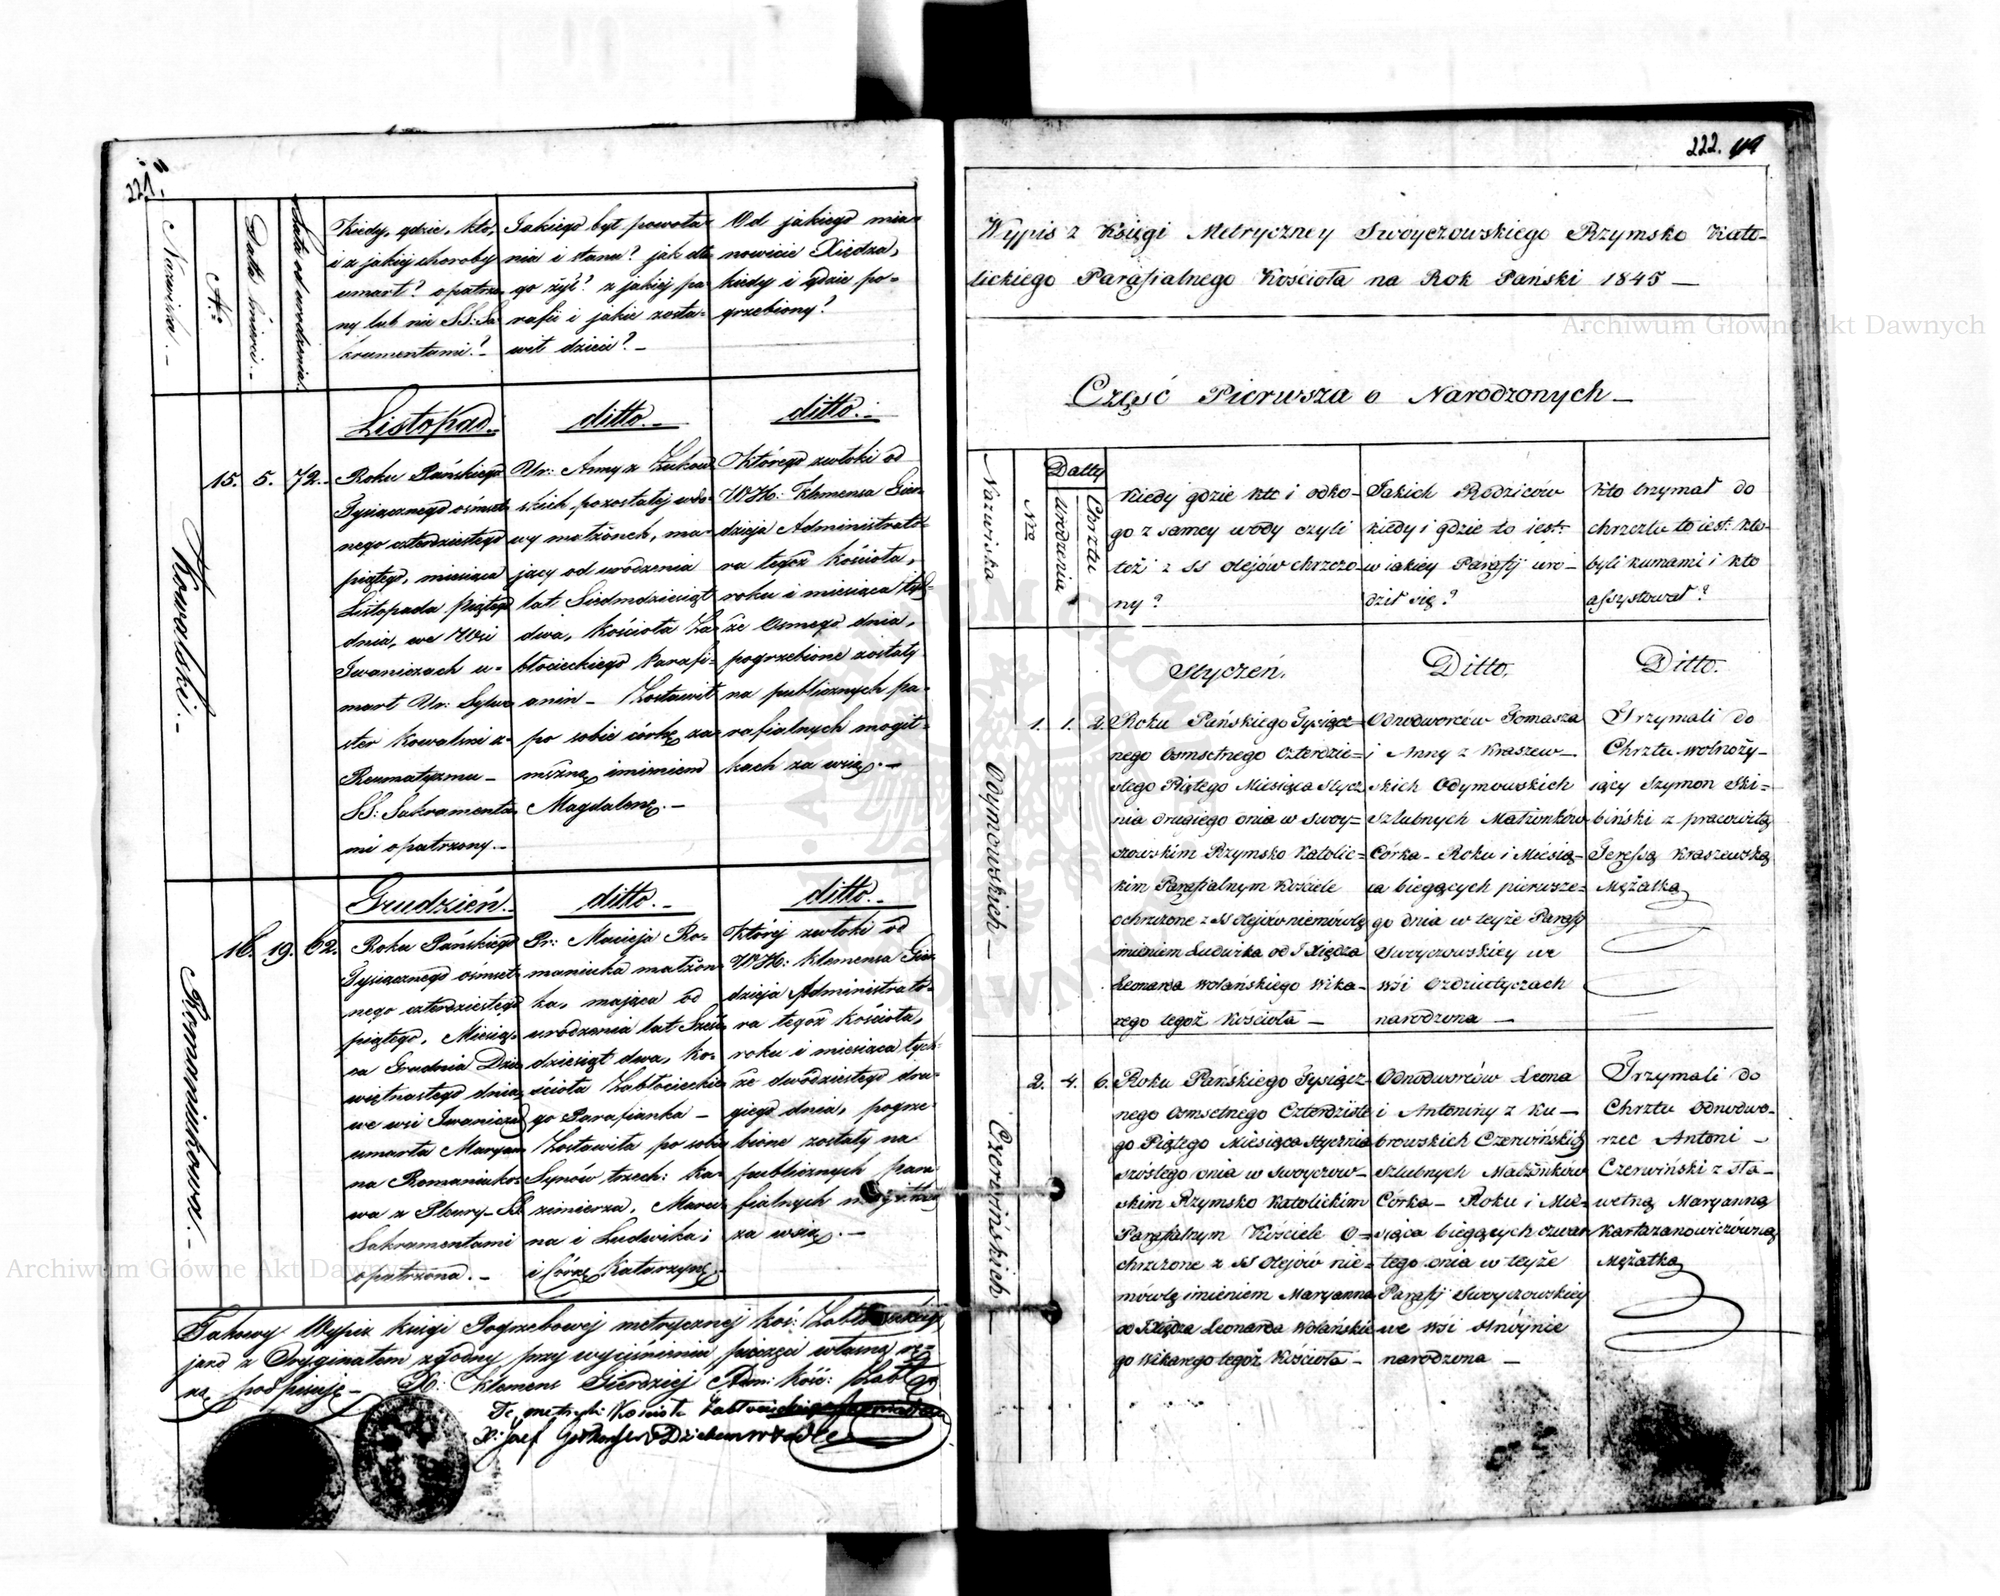 221.
Nazwiska.
N:
Datta śmierci.
Lata od urodzenia.
Kiedy, gdzie, kto,
i z jakiej choroby
umarł? opatrzo-
ny lub nie SS: Sa-
kramentami?
Jakiego był powoła-
nia i stanu? jak dłu-
go żył? z jakiej pa-
rafii i jakie zosta-
wił dzieci?
Od jakiego mia-
nowicie Xiędza,
kiedy i gdzie po-
grzebiony?
Listopad.
ditto.
ditto.
Kowalski.
15. 5. 72.
Roku Pańskiego
Tysiącznego ośmset-
nego czterdziestego
piątego, miesiąca
Listopada piątego
dnia, we Wsi
Iwaniczach u-
marł Ur: Sylwe
ster Kowalski z
Reumatyzmu
SS: Sakramenta
mi opatrzony.
Ur: Anny z Żukow
skich pozostałej wdo-
wy małżonek, ma-
jący od urodzenia
lat Siedmdziesiąt
dwa, Kościoła Za
błocieckiego Parafi-
anin - Zostawił
po sobie córkę za-
mężną imieniem
Magdalenę.
Którego zwłoki od
WX: Klemensa Gier-
dzieja Administrato-
ra tegoż kościoła,
roku i miesiąca tych-
że Osmego dnia,
pogrzebione zostały
na publicznych pa-
rafialnych mogił-
kach za wsią.
Grudzień.
ditto.
ditto.
Romaniukowa.
16. 19. 62.
Roku Pańskiego
Tysiącznego ośmset-
nego czterdziestego
piątego, Miesią-
ca Grudnia Dzie
więtnastego dnia
we wsi Iwaniczach
umarła Maryan
na Romaniuko-
wa z Pleury SS
Sakramentami
opatrzona.
Pr: Macieja Ro-
maniuka małżon
ka, mająca od
urodzenia lat Sześć
dziesiąt dwa, Ko-
ścioła Zabłockie
go Parafianka -
Zostawiła po sobie
Synów trzech: Ka-
zimierza, Marci-
na i Ludwika;
i Córkę Katarzynę.
Której zwłoki od
WX: Klemensa Gier
dzieja Administrato-
ra tegoż kościoła,
roku i miesiąca tych-
że dwódziestego dru-
giego dnia, pogrze-
bione zostały na
publicznych para
fialnych mogiłkach
za wsią.
Takowy Wypis z księgi Pogrzebowej metrycznej koś:
jako z Oryginałem zgodny przy wyciśnieniu pieczęci własną rę-
ką podpisuję - X: Klemens Gierdziej Adm: Koś:
222.
Wypis z Księgi Metryczney Swoyczowskiego Rzymsko Kato-
lickiego Parafialnego Kościoła na Rok Pański 1845 -
Część Pierwsza o Narodzonych -
Nazwiska
Nra
Datty
Urodzenia
Chrztu
Kiedy gdzie kto i odko-
go z samey wody czyli
też z SS olejów chrzczo-
ny?
Jakich Rodziców
kiedy i gdzie to iest:
w iakiey Parafij uro-
dził się?
Kto trzymał do
chrzztu to iest: kto
byli kumami i kto
assystował?
Styczeń.
Ditto.
Ditto.
Odymowskich
1. 1. 2.
Roku Pańskiego Tysiącz-
nego Osmsetnego Czterdzie-
stego Piątego Miesiąca Stycz
nia drugiego dnia w Swoy-
czowskim Rzymsko Katolic-
kim Parafialnym Kościele
ochrzczone z SS olejów niemówlę
imieniem Ludwika od J Xiędza
Leonarda Wolańskiego Wika-
rego tegoż Kościoła -
Odnodworców Tomasza
i Anny z Kraszew-
skich Odymowskich
szlubnych Małżonków
Córka - Roku i Miesią-
ca bieżących pierwsze-
go dnia w teyże Parafij
Swoyczowskiey we
wsi Ozdziutyczach
narodzona -
Trzymali do
Chrztu wolnoży-
iący Szymon Ski-
biński z pracowitą
Teressą Kraszewską
Mężatką
Czerwińskich
2. 4. 6.
Roku Pańskiego Tysiącz-
nego Osmsetnego Czterdzieste
go Piątego Miesiąca Stycznia
szóstego dnia w Swoyczow-
skim Rzymsko Katolickim
Parafialnym Kościele o-
chrzczone z SS olejów nie-
mówlę imieniem Maryanna
od J Xiędza Leonarda Wolańskie
go Wikarego tegoż Kościoła -
Odnodworców Leona
i Antoniny z Ku-
browskich Czerwińskich
szlubnych Małżonków
Córka - Roku i Mie-
siąca bieżących czwar
tego dnia w teyże
Parafij Swoyczowskiey
we wsi
narodzona -
Trzymali do
Chrztu Odnodwo-
rzec Antoni -
Czerwiński z sta-
wetną Maryanną
Kartazanowiczówną
Mężatką
Archiwum Główne Akt Dawnych
Archiwum Główne Akt Dawnych